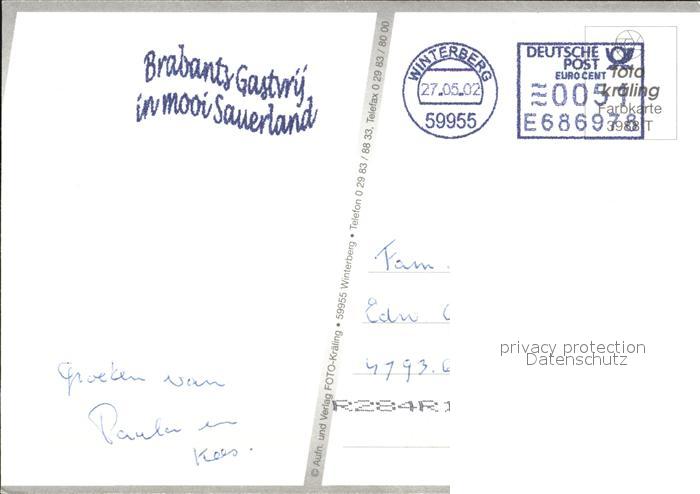 Brabants Gastvrij
in mooi Sauerland
WINTERBERG
27.05.02
59955
DEUTSCHE
POST
EURO CENT
0051
E686978
foto
kräling
Farbkarte
3988 T
© Aufn. und Verlag FOTO-Kräling • 59955 Winterberg • Telefon 0 29 83 / 88 33, Telefax 0 29 83 / 80 00
Fam.
Edw
4793.G
R284R1
privacy protection
Datenschutz
Groeten van
Paula en
Kees.